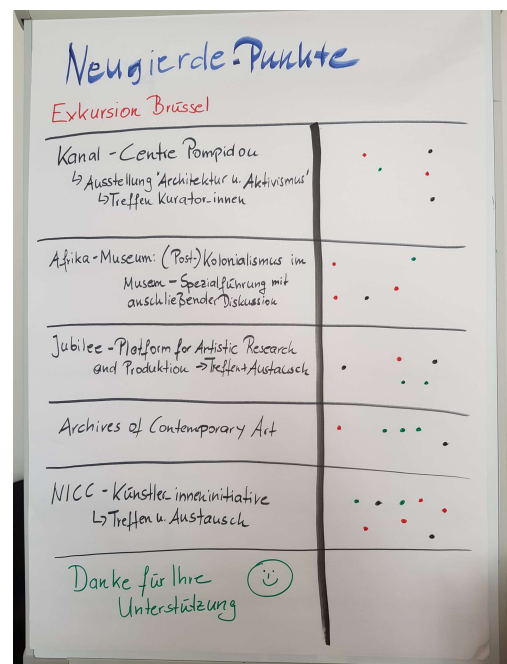 Neugierde-Punkte
Exkursion Brüssel
Kanal - Centre Pompidou
↳ Ausstellung 'Architektur u. Aktivismus'
↳ Treffen Kurator_innen
Afrika-Museum: (Post-)Kolonialismus im
Musem - Spezialführung mit
anschließender Diskussion
Jubilee - Platform for Artistic Research
and Produktion → Treffen + Austausch
Archives of Contemporary Art
NICC - Künstler_inneninitiative
↳ Treffen u. Austausch
Danke für Ihre
Unterstützung